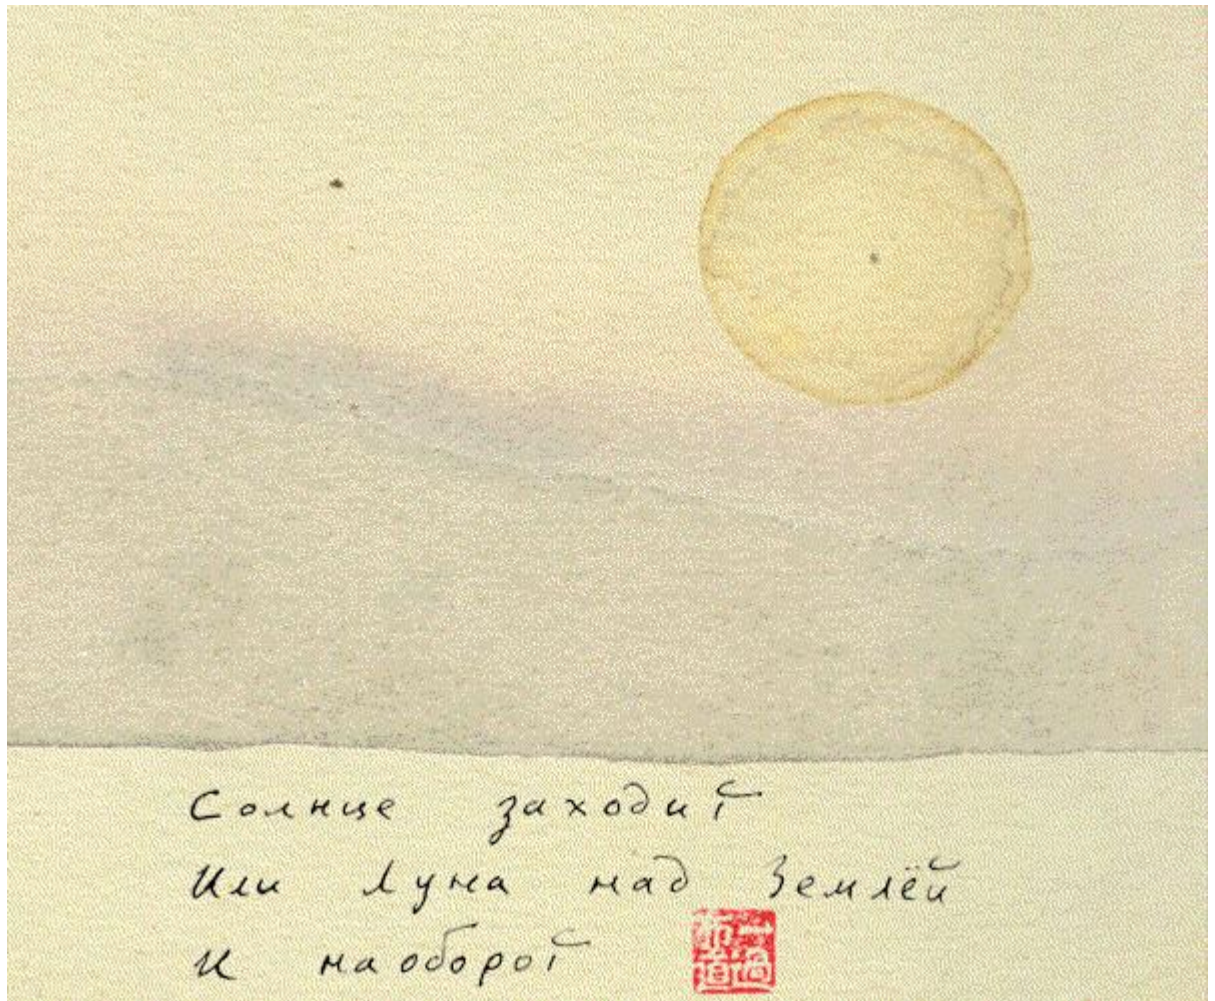 Солнце заходит
Или Луна над Землёй
И наоборот